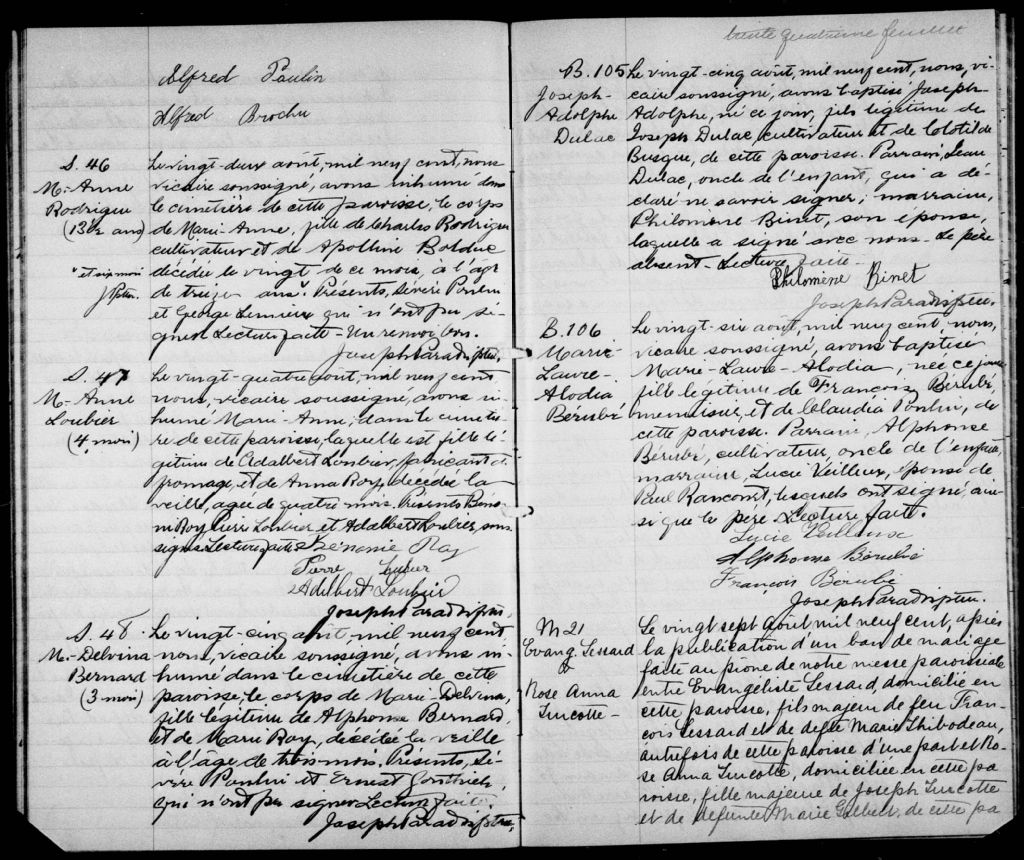 Alfred Poulin
Alfred Brochu
S. 46
M.-Anne
Rodrigue
(13½ ans)
"et six mois
J.P. ptre.
Le vingt-deux août, mil neuf cent, nous
vicaire soussigné, avons inhumé dans
le cimetière de cette paroisse, le corps
de Marie-Anne, fille de Charles Rodrigue
cultivateur et de Apolline Bolduc
décédée le vingt de ce mois, à l'âge
de treize ans". Présents, Sévère Poulin
et George Lemieux qui n'ont pu si-
gner. Lecture faite - Un renvoi bon.
Joseph Paradis ptre.
S. 47
M.-Anne
Loubier
(4 moi)
Le vingt-quatre août, mil neuf cent
nous, vicaire soussigné, avons in-
humé Marie-Anne, dans le cimetiè-
re de cette paroisse, laquelle est fille lé-
gitime de Adalbert Loubier, fabricant de
fromage, et de Anna Roy, décédée la
veille, agée de quatre mois. Présents Béno-
ni Roy, Pierre Loubier et Adalbert Loubier, sous-
signés. Lecture faite
Bénonie Roy
Pierre
Adelbert Loubier
Joseph Paradis ptre.
S. 48
M.-Delvina
Bernard
(3 moi)
Le vingt-cinq août, mil neuf cent
nous, vicaire soussigné, avons in-
humé dans le cimetière de cette
paroisse, le corps de Marie-Delvina,
fille légitime de Alphonse Bernard
et de Marie Roy, décédée la veille
à l'âge de trois mois. Présents, Sé-
vère Poulin et Ernest Gonthier,
qui n'ont pu signer Lecture faite.
Joseph Paradis ptre.
trente quatrième feuillet
B. 105
Joseph-
Adolphe
Dulac
Le vingt-cinq août, mil neuf cent, nous, vi-
caire soussigné, avons baptisé Joseph-
Adolphe, né ce jour, fils légitime de
Joseph Dulac cultivateur et de Clotilde
Busque, de cette paroisse. Parrain, Jean
Dulac, oncle de l'enfant, qui a dé-
claré ne savoir signer; marraine,
Philomène Binet, son épouse,
laquelle a signé avec nous - Le père
absent - Lecture faite -
Philomène Binet
Joseph Paradis ptre.
B. 106
Marie-
Laure-
Alodia
Bérubé
Le vingt-six août, mil neuf cent, nous,
vicaire soussigné, avons baptisé
Marie-Laure-Alodia, née ce jour
fille légitime de François Bérubé
menuisier, et de Claudia Poulin, de
cette paroisse. Parrain, Alphonse
Bérubé, cultivateur, oncle de l'enfant,
marraine, Lucie Veilleux, épouse de
Paul Rancourt, lesquels ont signé, ain-
si que le père. Lecture faite.
Lucie Veilleux
Alphonse Bérubé
François Bérubé
Joseph Paradis ptre.
M 21
Evang. Lessard
&
Rose Anna
Turcotte -
Le vingt sept août mil neuf cent, après
la publication d'un ban de mariage
faite au prône de notre messe paroissiale
entre Evangéliste Lessard, domicilié en
cette paroisse, fils majeur de feu Fran-
çois Lessard et de defte Marie Thibodeau,
autrefois de cette paroisse d'une part et Ro-
se Anna Turcotte, domiciliée en cette pa
roisse, fille majeure de Joseph Turcotte
et de défunte Marie Gilbert, de cette pa